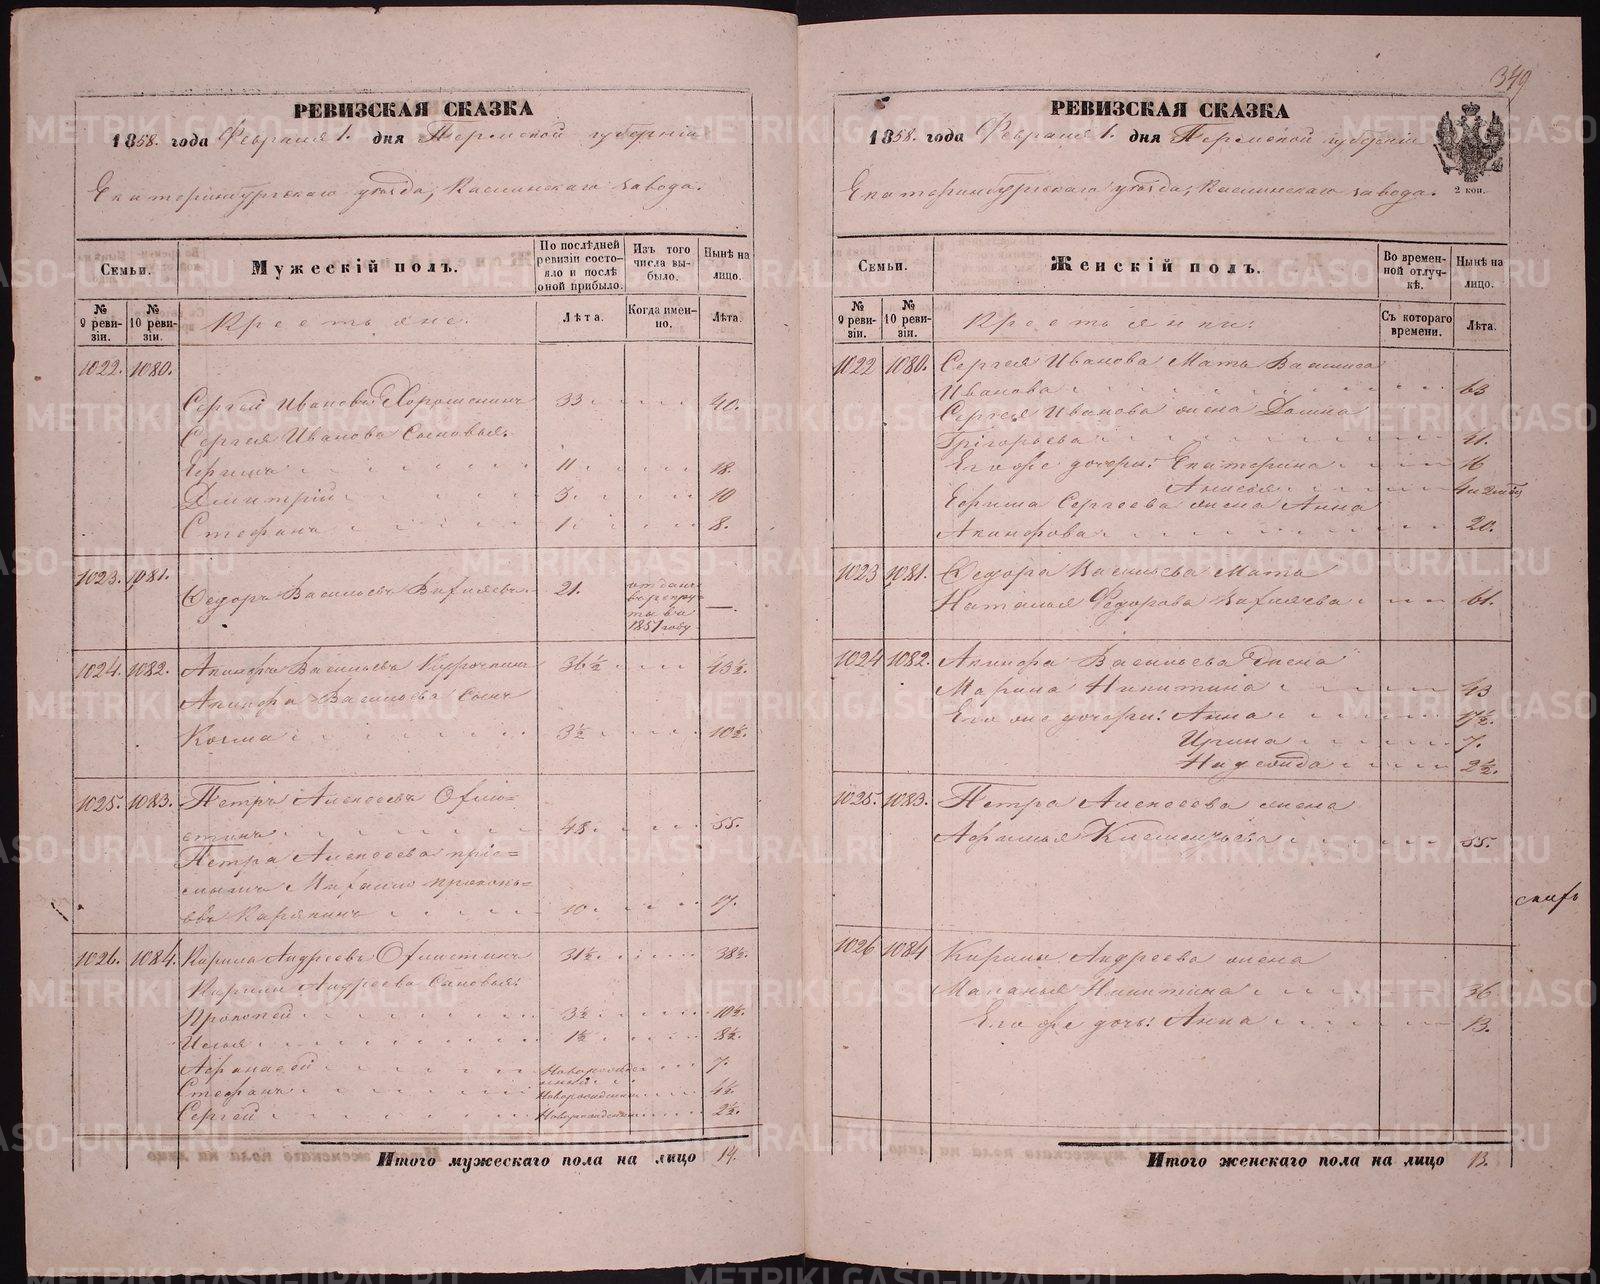 РЕВИЗСКАЯ СКАЗКА
1858. года Февраля 1. дня Пермской губерніи
Екатеринбургскаго уѣзда, Каслинскаго завода.
Семьи.
Мужескій полъ.
По послѣдней ревизіи состояло и послѣ оной прибыло.
Изъ того числа выбыло.
Нынѣ на лицо.
№ 9 ревизіи.
№ 10 ревизіи.
Крестьяне.
Лѣта.
Когда именно.
Лѣта.
1022. 1080.
Сергѣй Ивановъ Хорошенинъ 33 40.
Сергѣя Иванова Сыновья:
11 18.
Дмитрій 3 10
Стефанъ 1 8.
1023. 1081.
Федоръ Васильевъ 21. отданъ в рекруты в 1851 году —
1024. 1082. Акинфъ Васильевъ 36½ 43½.
Акинфа Васильева Сынъ
Козма 3½ 10½.
1025. 1083. Петръ Алексѣевъ
48 55.
Петра Алексѣева пріе=
мышъ Михайло Прокопь=
евъ Карякинъ 10 17.
1026. 1084. Кирила Андреевъ 31½ 38½.
Кирилы Андреева Сыновья:
Прокопей 3½ 10½.
1½ 8½.
Афонасей Новорожденный 7.
Стефанъ Новорожденный 4½
Сергей Новорожденный 2½.
Итого мужескаго пола на лицо 14.
349
РЕВИЗСКАЯ СКАЗКА
1858. года Февраля 1. дня Пермской губерніи
Екатеринбургскаго уѣзда, Каслинскаго завода.
2 коп.
Семьи.
Женскій полъ.
Во временной отлучкѣ.
Нынѣ на лицо.
№ 9 ревизіи.
№ 10 ревизіи.
Крестьянки:
Съ котораго времени.
Лѣта.
1022 1080. Сергея Иванова Мать Василиса
Иванова 63
Сергея Иванова жена Домна
Григорьева 41.
Его же дочери: Екатерина 16
Анисья 4
Сергеева жена Анна
Акинфова 20.
1023 1081. Федора Васильева Мать
Наталья Федорова 61.
1024 1082. Акинфа Васильева Жена
Марина Никитина 43
Его же дочери: Анна 17½.
Ирина 7.
Надежда 2½.
1025. 1083. Петра Алексеева жена
Афимья Клементьева 55.
1026 1084 Кирилы Андреева жена
Маланья Никитина 36
Его же дочь: Анна 13.
Итого женскаго пола на лицо 13.
METRIKI.GASO-URAL.RU